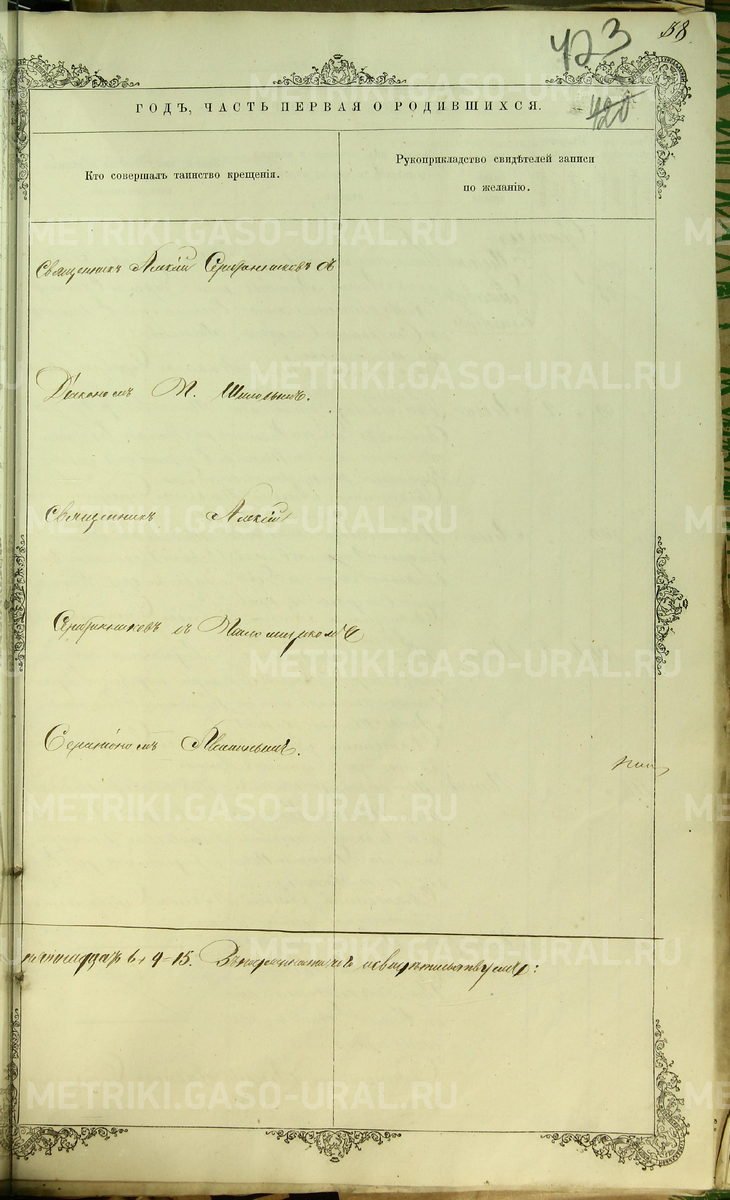 58.
423
420
ГОДЪ, ЧАСТЬ ПЕРВАЯ О РОДИВШИХСЯ.
Кто совершалъ таинство крещенія.
Рукоприкладство свидѣтелей записи
по желанію.
Священникъ Алексій Серебренниковъ съ
Діакономъ М. Шиловымъ.
Священникъ Алексій
Серебренниковъ съ
Серапіономъ
6 + 9 = 15.
METRIKI.GASO-URAL.RU